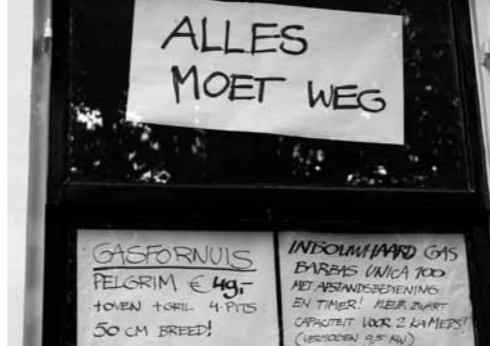 ALLES
MOET WEG
GASFORNUIS
PELGRIM € 49,-
+OVEN +GRIL 4-PITS
50 CM BREED!
INBOUWHAARD GAS
BARBAS UNICA 700
MET AFSTANDSBEDIENING
EN TIMER! KLEUR ZWART
CAPACITEIT VOOR 2 KAMERS!
(VERMOGEN 9,5 KW)